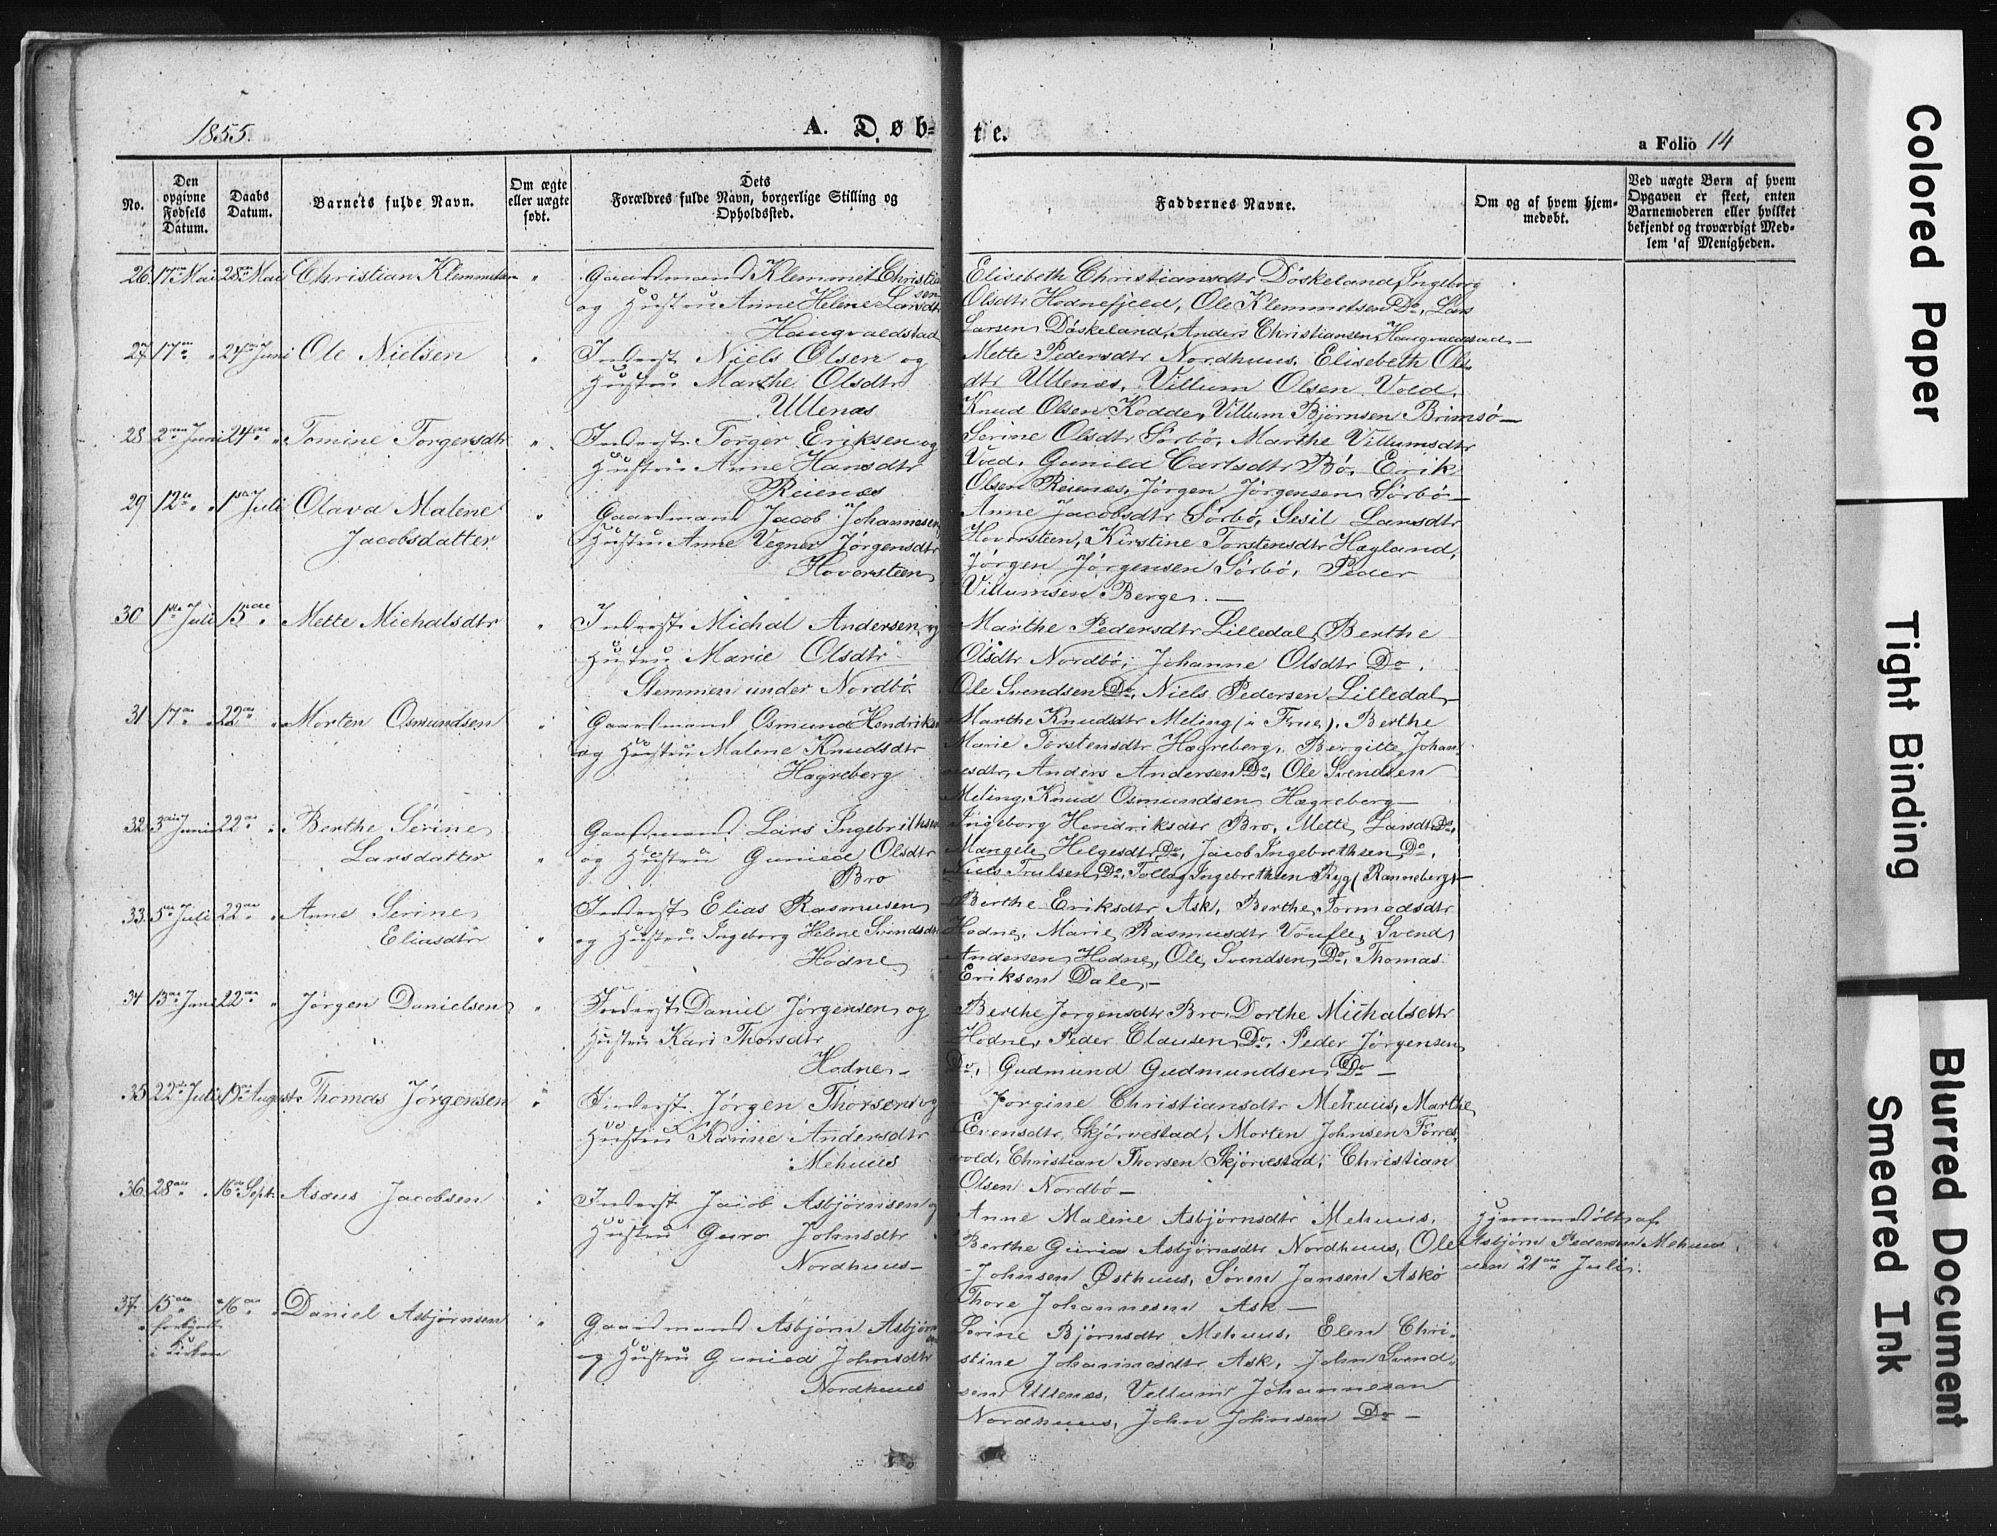 1855.
A. Døb-
te.
a Folio 14
No.
Den opgivne Fødsels Datum.
Daabs Datum.
Barnets fulde Navn.
Om ægte eller uægte født.
Dets Forældres fulde Navn, borgerlige Stilling og Opholdssted.
Faddernes Navne.
Om og af hvem hjemmedøbt.
Ved uægte Børn af hvem Opgaven er skeet, enten Barnemoderen eller hvilket bekjendt og troværdigt Medlem af Menigheden.
26 17de Mai 28de Mai Christian Klemmetsen " Gaardmand Klemmet Christiansen
og Hustru Anne Helene Larsdtr
Haugvaldstad
Elisebeth Christiansdtr Døskeland, Ingeborg
Olsdtr Hodnefjeld, Ole Klemmetsen Do, Lars
Larsen Døskeland, Anders Christiansen, Haugvaldstad
27 17de " 24de Juni Ole Nielsen " Inderst Niels Olsen og
Hustru Marthe Olsdtr
Ullenæs
Mette Pedersdtr Nordhuus, Elisebeth Ols-
dtr Ullenæs, Villum Olsen Vold,
Knud Olsen Kodde, Villum Bjørnsen Brimsø—
28 2den Juni 24de " Tomine Torgersdtr " Inderst Torger Eriksen og
Hustru Anne Hansdtr
Reienæs
Serine Olsdtr Sørbø, Marthe Villumsdtr
Vold, Gunild Carlsdtr Bø, Erik
Olsen Reienæs, Jørgen Jørgensen Sørbø—
29 12te " 1ste Juli Olava Malene
Jacobsdatter
" Gaardmand Jacob Johannesen
Hustru Anne Vegner Jørgensdtr
Hoversteen
Anne Jacobsdtr Sørbø, Sesil Larsdtr
Hoversteen, Kirstine Torstensdtr Hægland,
Jørgen Jørgensen Sørbø, Peder
Villumsen Berge. —
30 1ste Juli 15de " Mette Michalsdtr " Inderst Michal Andersen og
Hustru Marie Olsdtr
Stemmen under Nordbø
Marthe Pedersdtr Lilledal, Berthe
Olsdtr Nordbø, Johanne Olsdtr Do,
Ole Svendsen Do, Niels Pedersen Lilledal—
31 17de " 22de " Morten Osmundsen " Gaardmand Osmund Hendriksen
og Hustru Malene Knudsdtr
Hægreberg
Marthe Knudsdtr Meling (i Frue), Berthe
Marie Torstensdtr Hægreberg, Bergitte Johan-
nesdtr, Anders Andersen Do, Ole Svendsen
Meling, Knud Osmundsen Hægreberg—
32 3die Juni 22de " Berthe Serine
Larsdatter
" Gaardmand Lars Ingebrithsen
og Hustru Gunild Olsdtr
Bro
Ingeborg Hendriksdtr Bro, Mette Larsdtr Do,
Mangele Helgesdtr Do, Jacob Ingebrethsen Do,
Niels Trulsen Do, Tollag Ingebrethsen Ryg (Ranneberg)—
33 5te Juli 22de " Anne Serine
Eliasdtr
" Inderst Elias Rasmusen
og Hustru Ingeborg Helene Svendsdtr
Hodne
Berthe Eriksdtr Ask, Berthe Tormodsdtr
Hodne, Marie Rasmusdtr Voufle, Svend
Andersen Hodne, Ole Svendsen Do, Thomas
Eriksen Dale—
34 13de Juni 22de " Jørgen Danielsen " Inderst Daniel Jørgensen og
Hustru Kari Thorsdtr
Hodne—
Berthe Jørgensdtr Bro, Dorthe Michalsdtr
Hodne, Peder Clausen Do, Peder Jørgensen
Do, Gudmund Gudmundsen Do —
35 22de Juli 19de August Thomas Jørgensen " Inderst Jørgen Thorsen og
Hustru Karine Andersdtr
Mehuus
Jorgine Christiansdtr Mehuus, Marthe
Evensdtr Skjørvestad, Morten Johnsen Forres-
vold, Christian Thorsen Skjørvestad, Christian
Olsen Nordbø—
36 28de " 16de Sept. Asæus Jacobsen " Inderst Jacob Asbjørnsen og
Hustru Guro Johnsdtr
Nordhuus—
Anne Malene Asbjørnsdtr Mehuus,
Berthe Guria Asbjørnsdtr Nordhuus, Ole
Johnsen Østhuus, Søren Jansen Askø
Thore Johannesen Ask—
Hjemmedøbt af
Asbjørn Pedersen Mehuus
den 21de Juli.
37 15de " 16de " Daniel Asbjørnsen " Gaardmand Asbjørn Asbjørnsen
og Hustru Gunild Johnsdtr
Nordhuus
i Kirken
Serine Bjørnsdtr Mehuus, Elen Chri-
stine Johannesdtr Ask, John Svend-
sen Ullenæs, Villum Johannesen
Nordhuus, John Johnsen Do —
Colored Paper
Tight Binding
Blurred Document
Smeared Ink